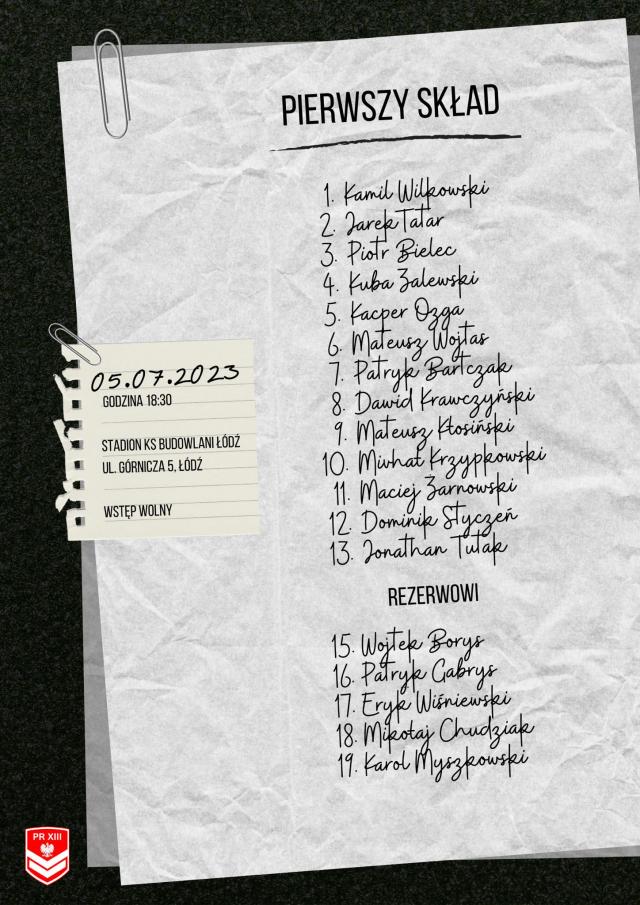 PIERWSZY SKŁAD
1. Kamil Wilkowski
2. Jarek Tatar
3. Piotr Bielec
4. Kuba Zalewski
5. Kacper Ozga
6. Mateusz Wojtas
7. Patryk Bartczak
8. Dawid Krawczyński
9. Mateusz Kłosiński
10. Miwhał Krzypkowski
11. Maciej Żarnowski
12. Dominik Styczeń
13. Jonathan Tutak
REZERWOWI
15. Wojtek Borys
16. Patryk Gabrys
17. Eryk Wiśniewski
18. Mikołaj Chudziak
19. Karol Myszkowski
05.07.2023
GODZINA 18:30
STADION KS BUDOWLANI ŁÓDŹ
UL. GÓRNICZA 5, ŁÓDŹ
WSTĘP WOLNY
PR XIII